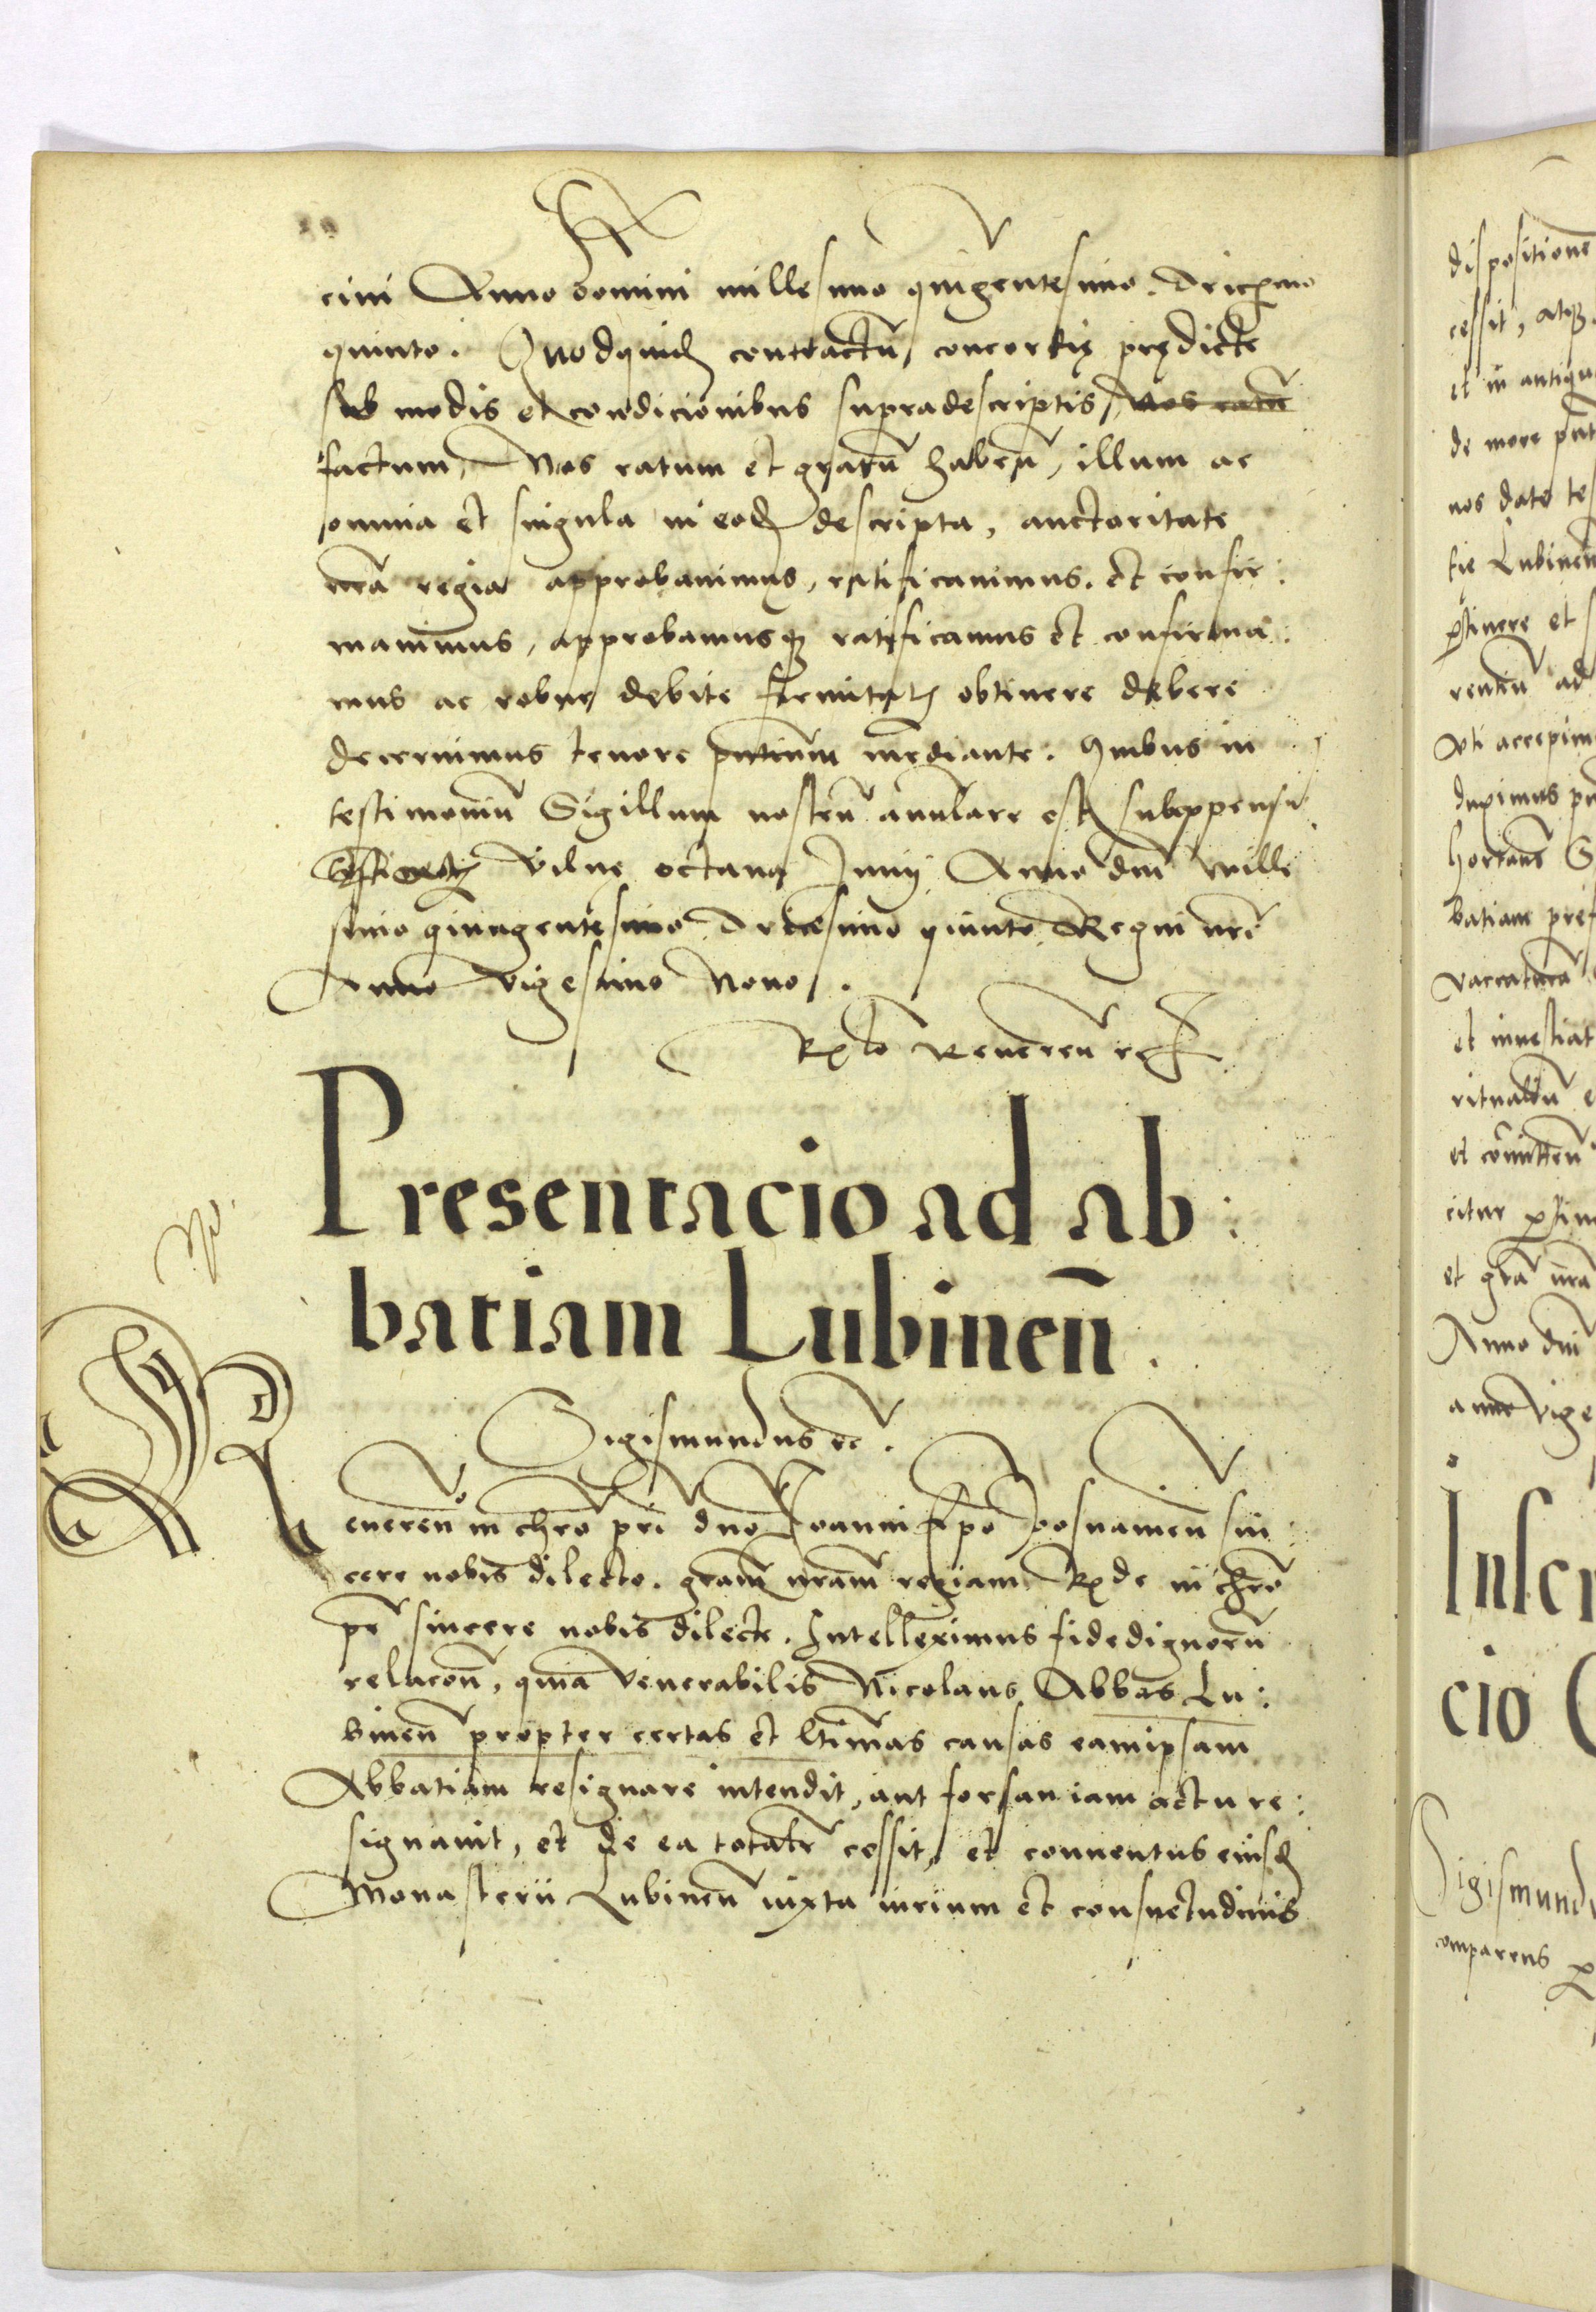 cim Anno domini millesimo quingentesimo. Tricesimo
quinto. Quodquid contractũ, concordię prędicte
sub modis et condicionibus supradescriptis, nos ratũ
factum, Nos ratum et gratũ habeñ, illum ac
omnia et singula in eod descripta, auctoritate
nrã regia approbauimus, ratificauimus. et confir:
mauimus, approbamusq ratificamus et confirma:
mus ac robur debite firmitatis obtinere debere
decernimus tenore pñtium mediante. Quibus in
testimoniũ Sigillum nostrũ anulare est subappensũ
Vilnę octaua Junij Anno dñi Mille
simo quingentesimo Tricesimo quinto Regni nrĩ
Anno Vigesimo Nono.
Rlo Reuereñ
Presentacio ad ab:
batiam Lubineñ.
Sigismundus etc.
Reuereñ in chrõ prĩ dnõ Joanni Epõ Posnanieñ sin:
cere nobis dilecto. gratiã nrãm regiam. Rde in chrõ
pr̃ sincere nobis dilecte. Intelleximus fidedignorũ
relacoñ, quia Venerabilis Nicolaus Abbas Lu:
bineñ propter certas et ltimas causas eamipsam
Abbatiam resignare intendit, aut forsan iam actu re:
signauit, et de ea totalr̃ cessit, et conuentus eiusd
Monasterii Lubineñ iuxta iurium et consuetudinis
dispositione
cessit, atq
et in antiqu
de more
nos date
tię Lubineñ
ptinere et
ad
Vti accepim
duximus
hortañ
batiam pref
et inuestiat
et
et grã nrã
Anno dñi
anno Vige
Inscr
cio
Sigismund
comparens